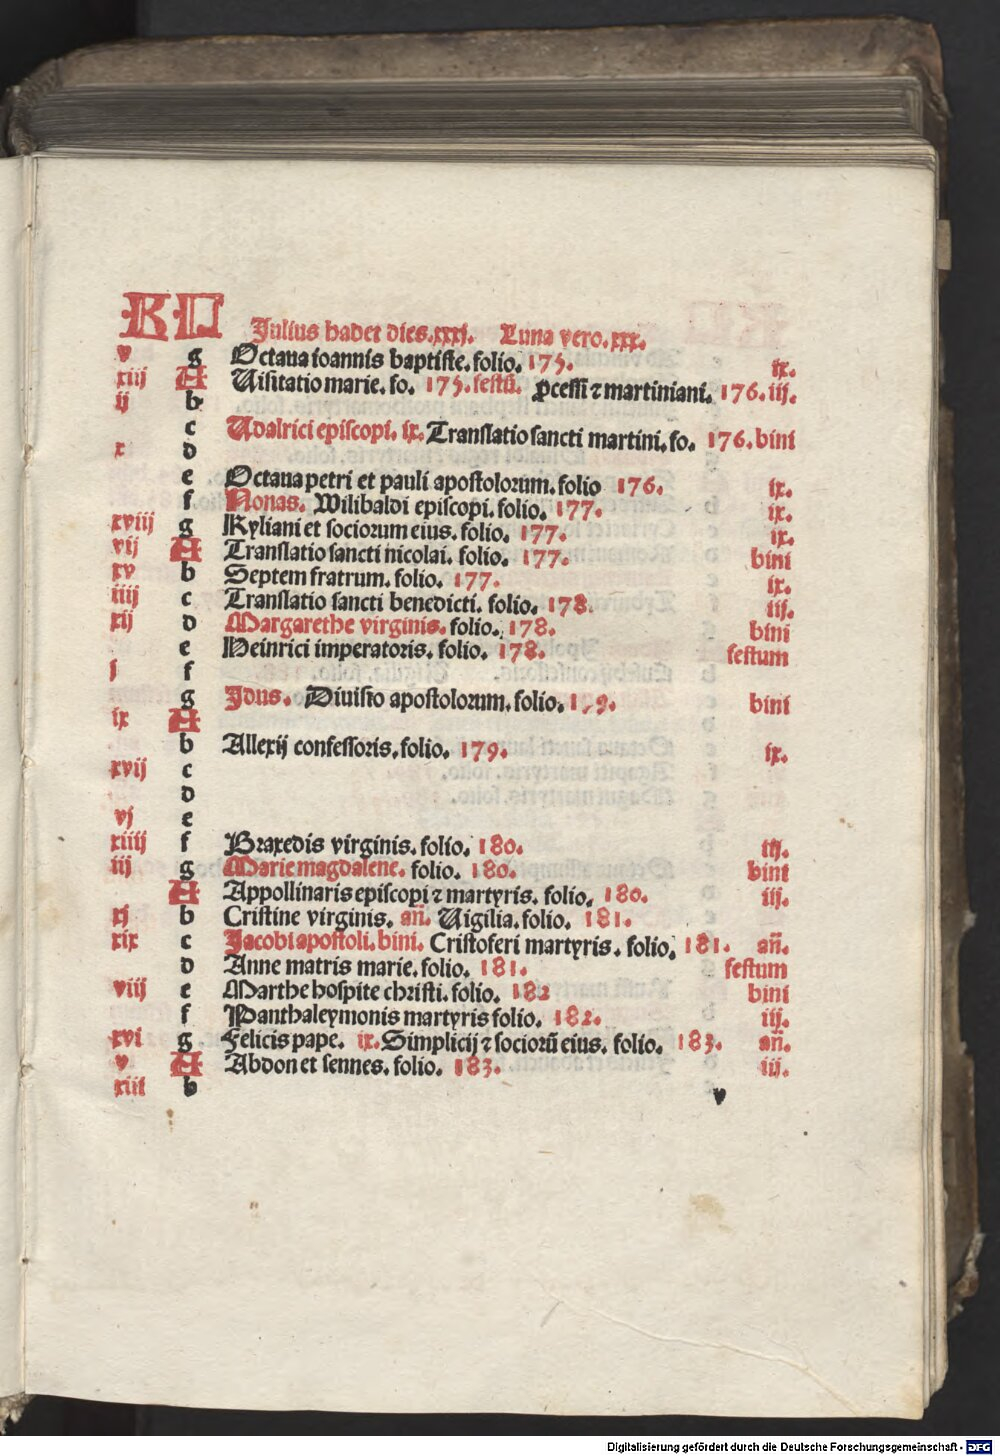 KL Julius habet dies.xxxj. Luna vero.xxx.
v g Octaua ioannis baptiste.folio. 175. ix.
xiij A Uisitatio marie. fo. 175.festū. ꝓcessi ⁊ martiniani. 176.iij.
ij b
c Udalrici episcopi. ix. Translatio sancti martini. fo. 176.bini
x d
e Octaua petri et pauli apostolorum.folio 176. ix.
f Nonas. Wilibaldi episcopi.folio. 177. ix.
xviij g Kyliani et sociorum eius.folio. 177. ix.
vij A Translatio sancti nicolai. folio. 177. bini
xv b Septem fratrum. folio. 177. ix.
iiij c Translatio sancti benedicti. folio. 178. iij.
xij d Margarethe virginis. folio. 178. bini
e Heinrici imperatoris. folio. 178. festum
j f
g Jdus. Diuisio apostolorum.folio. 179. bini
ix A
b Allexij confessoris.folio. 179. ix.
xvij c
d
vj e
xiiij f Braxedis virginis. folio. 180. iij.
iij g Marie magdalene. folio. 180. bini
A Appollinaris episcopi ⁊ martyris. folio. 180. iij.
xj b Cristine virginis. añ. Uigilia.folio. 181.
xix c Jacobi apostoli.bini. Cristoferi martyris. folio. 181. añ.
d Anne matris marie.folio. 181. festum
viij e Marthe hospite christi.folio. 182 bini
f Panthaleymonis martyris folio. 182. iij.
xvi g Felicis pape. ix. Simplicij ⁊ socioꝛū eius. folio. 183. añ.
v A Abdon et sennes. folio. 183. iij.
xiii b v
Digitalisierung gefördert durch die Deutsche Forschungsgemeinschaft - DFG